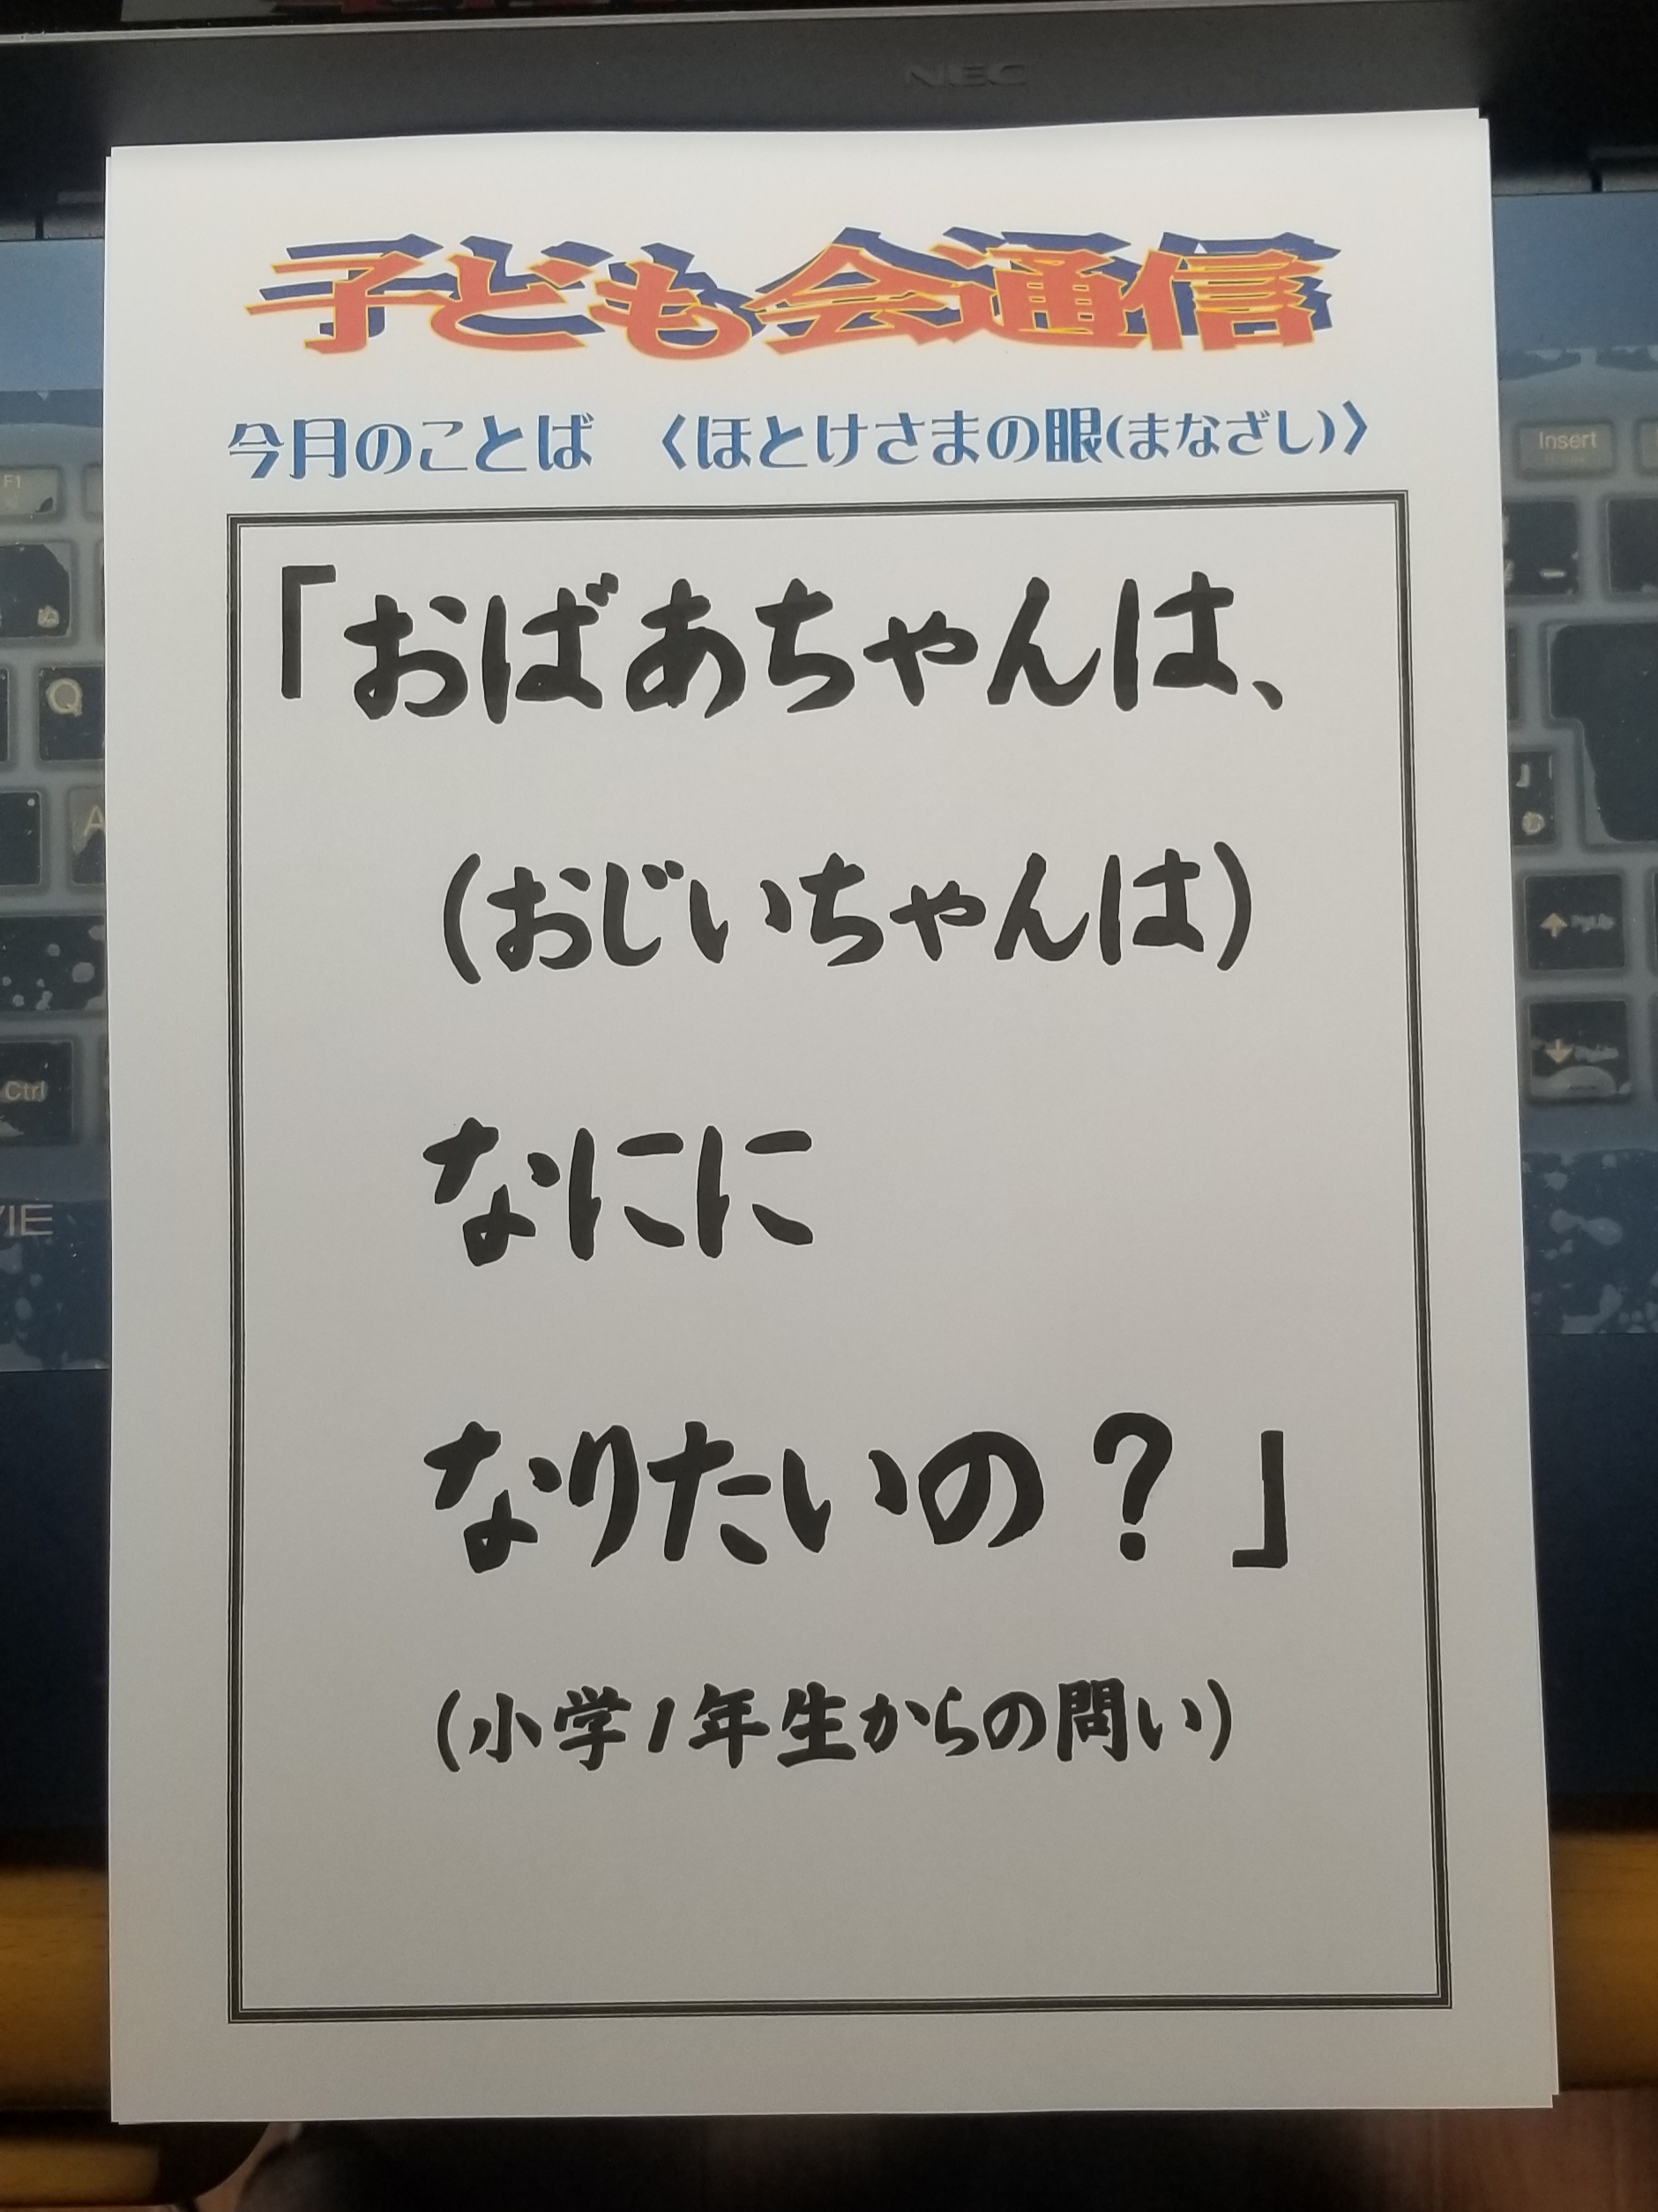 NEC
子ども会通信
今月のことば　〈ほとけさまの眼(まなざし)〉
「おばあちゃんは、
(おじいちゃんは)
なにに
なりたいの？」
(小学1年生からの問い)
Insert
F1
ぬ
Q
A
Ctrl
VIE